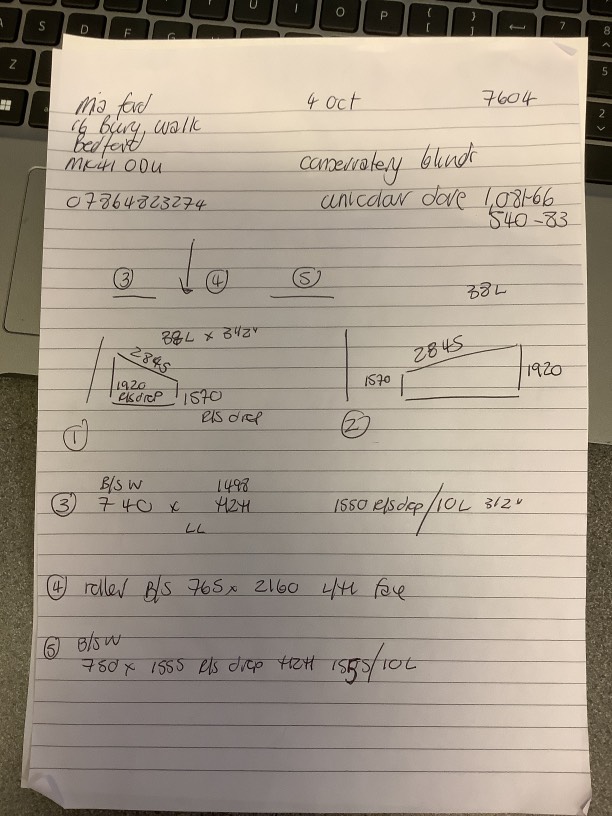 mia ford 4 Oct 7604
16 Bury walk
Bedford
MK41 0DU conservatory blinds
07864823274 unicolour dove 1,081-66
540-83
③ ④ ⑤
38L
38L x 3 1/2"
2845
1920
R/S drop
1570
R/S drop
①
2845
1570
1920
②
B/S W 1498
③ 740 x H2H 1550 R/S drop/10L 3 1/2"
LL
④ roller B/S 765 x 2160 L/H face
B/S W
⑤ 780 x 1555 R/S drop H2H 1555/10L